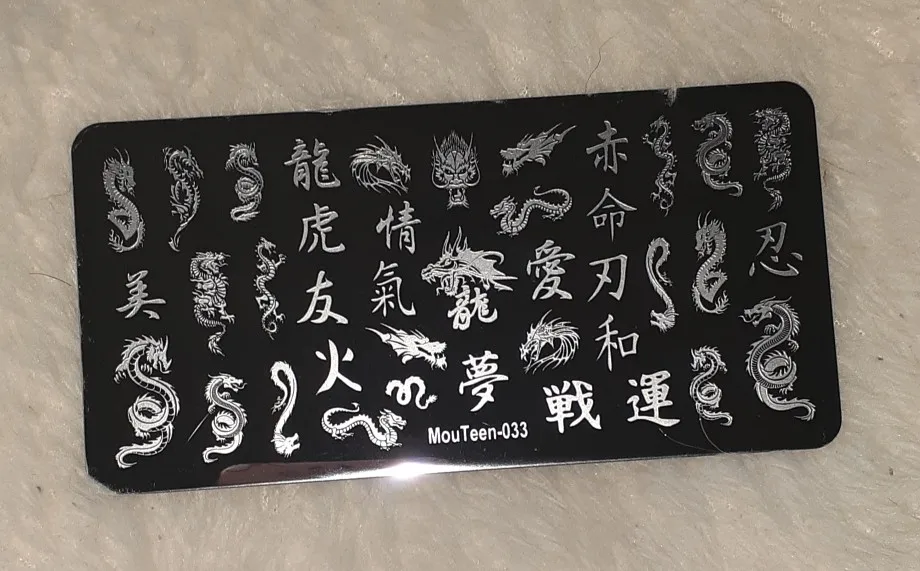 龍
虎
友
火
美
情
氣
龍
夢
愛
赤
命
刃
和
忍
戦
運
MouTeen-033